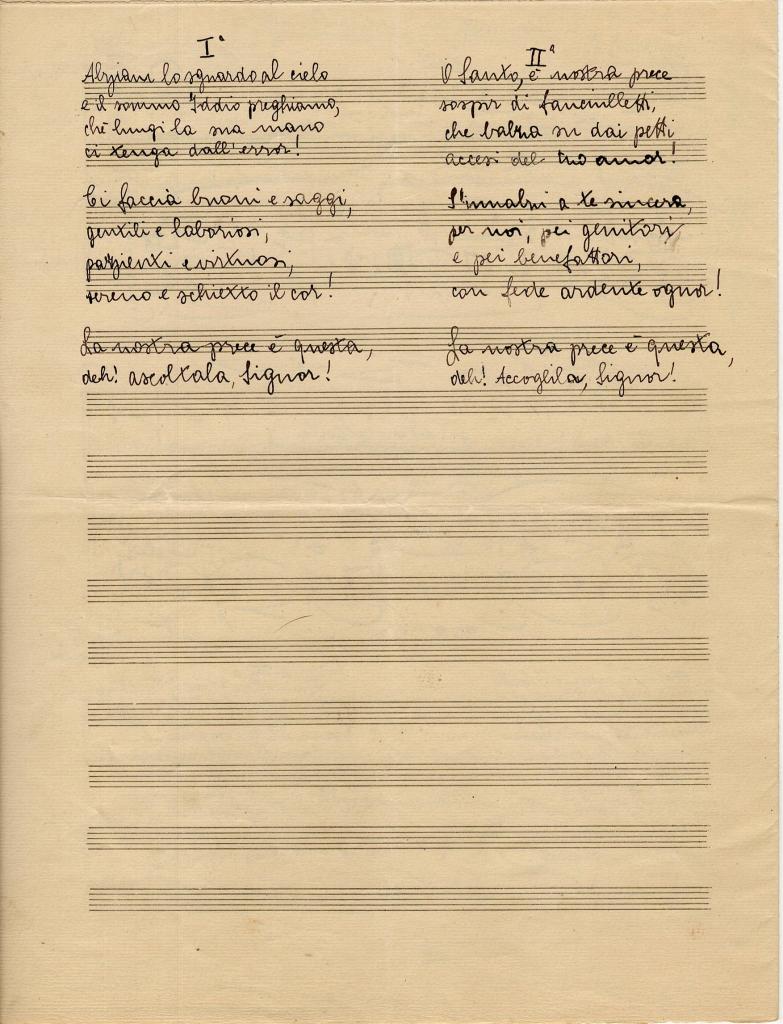 Iª
Alziam lo sguardo al cielo
e il sommo Iddio preghiamo,
chè lungi la sua mano
ci tenga dall'error!
Ci faccia buoni e saggi,
gentili e laboriosi,
pazienti e virtuosi,
sereno e schietto il cor!
La nostra prece è questa,
deh! ascoltala, Signor!
IIª
O Santo, è nostra prece
sospir di fanciulletti,
che balza su dai petti
accesi del tuo amor!
S'innalzi a te sincera,
per noi, pei genitori
e pei benefattori,
con fede ardente ognor!
La nostra prece è questa,
deh! Accoglila, Signor!